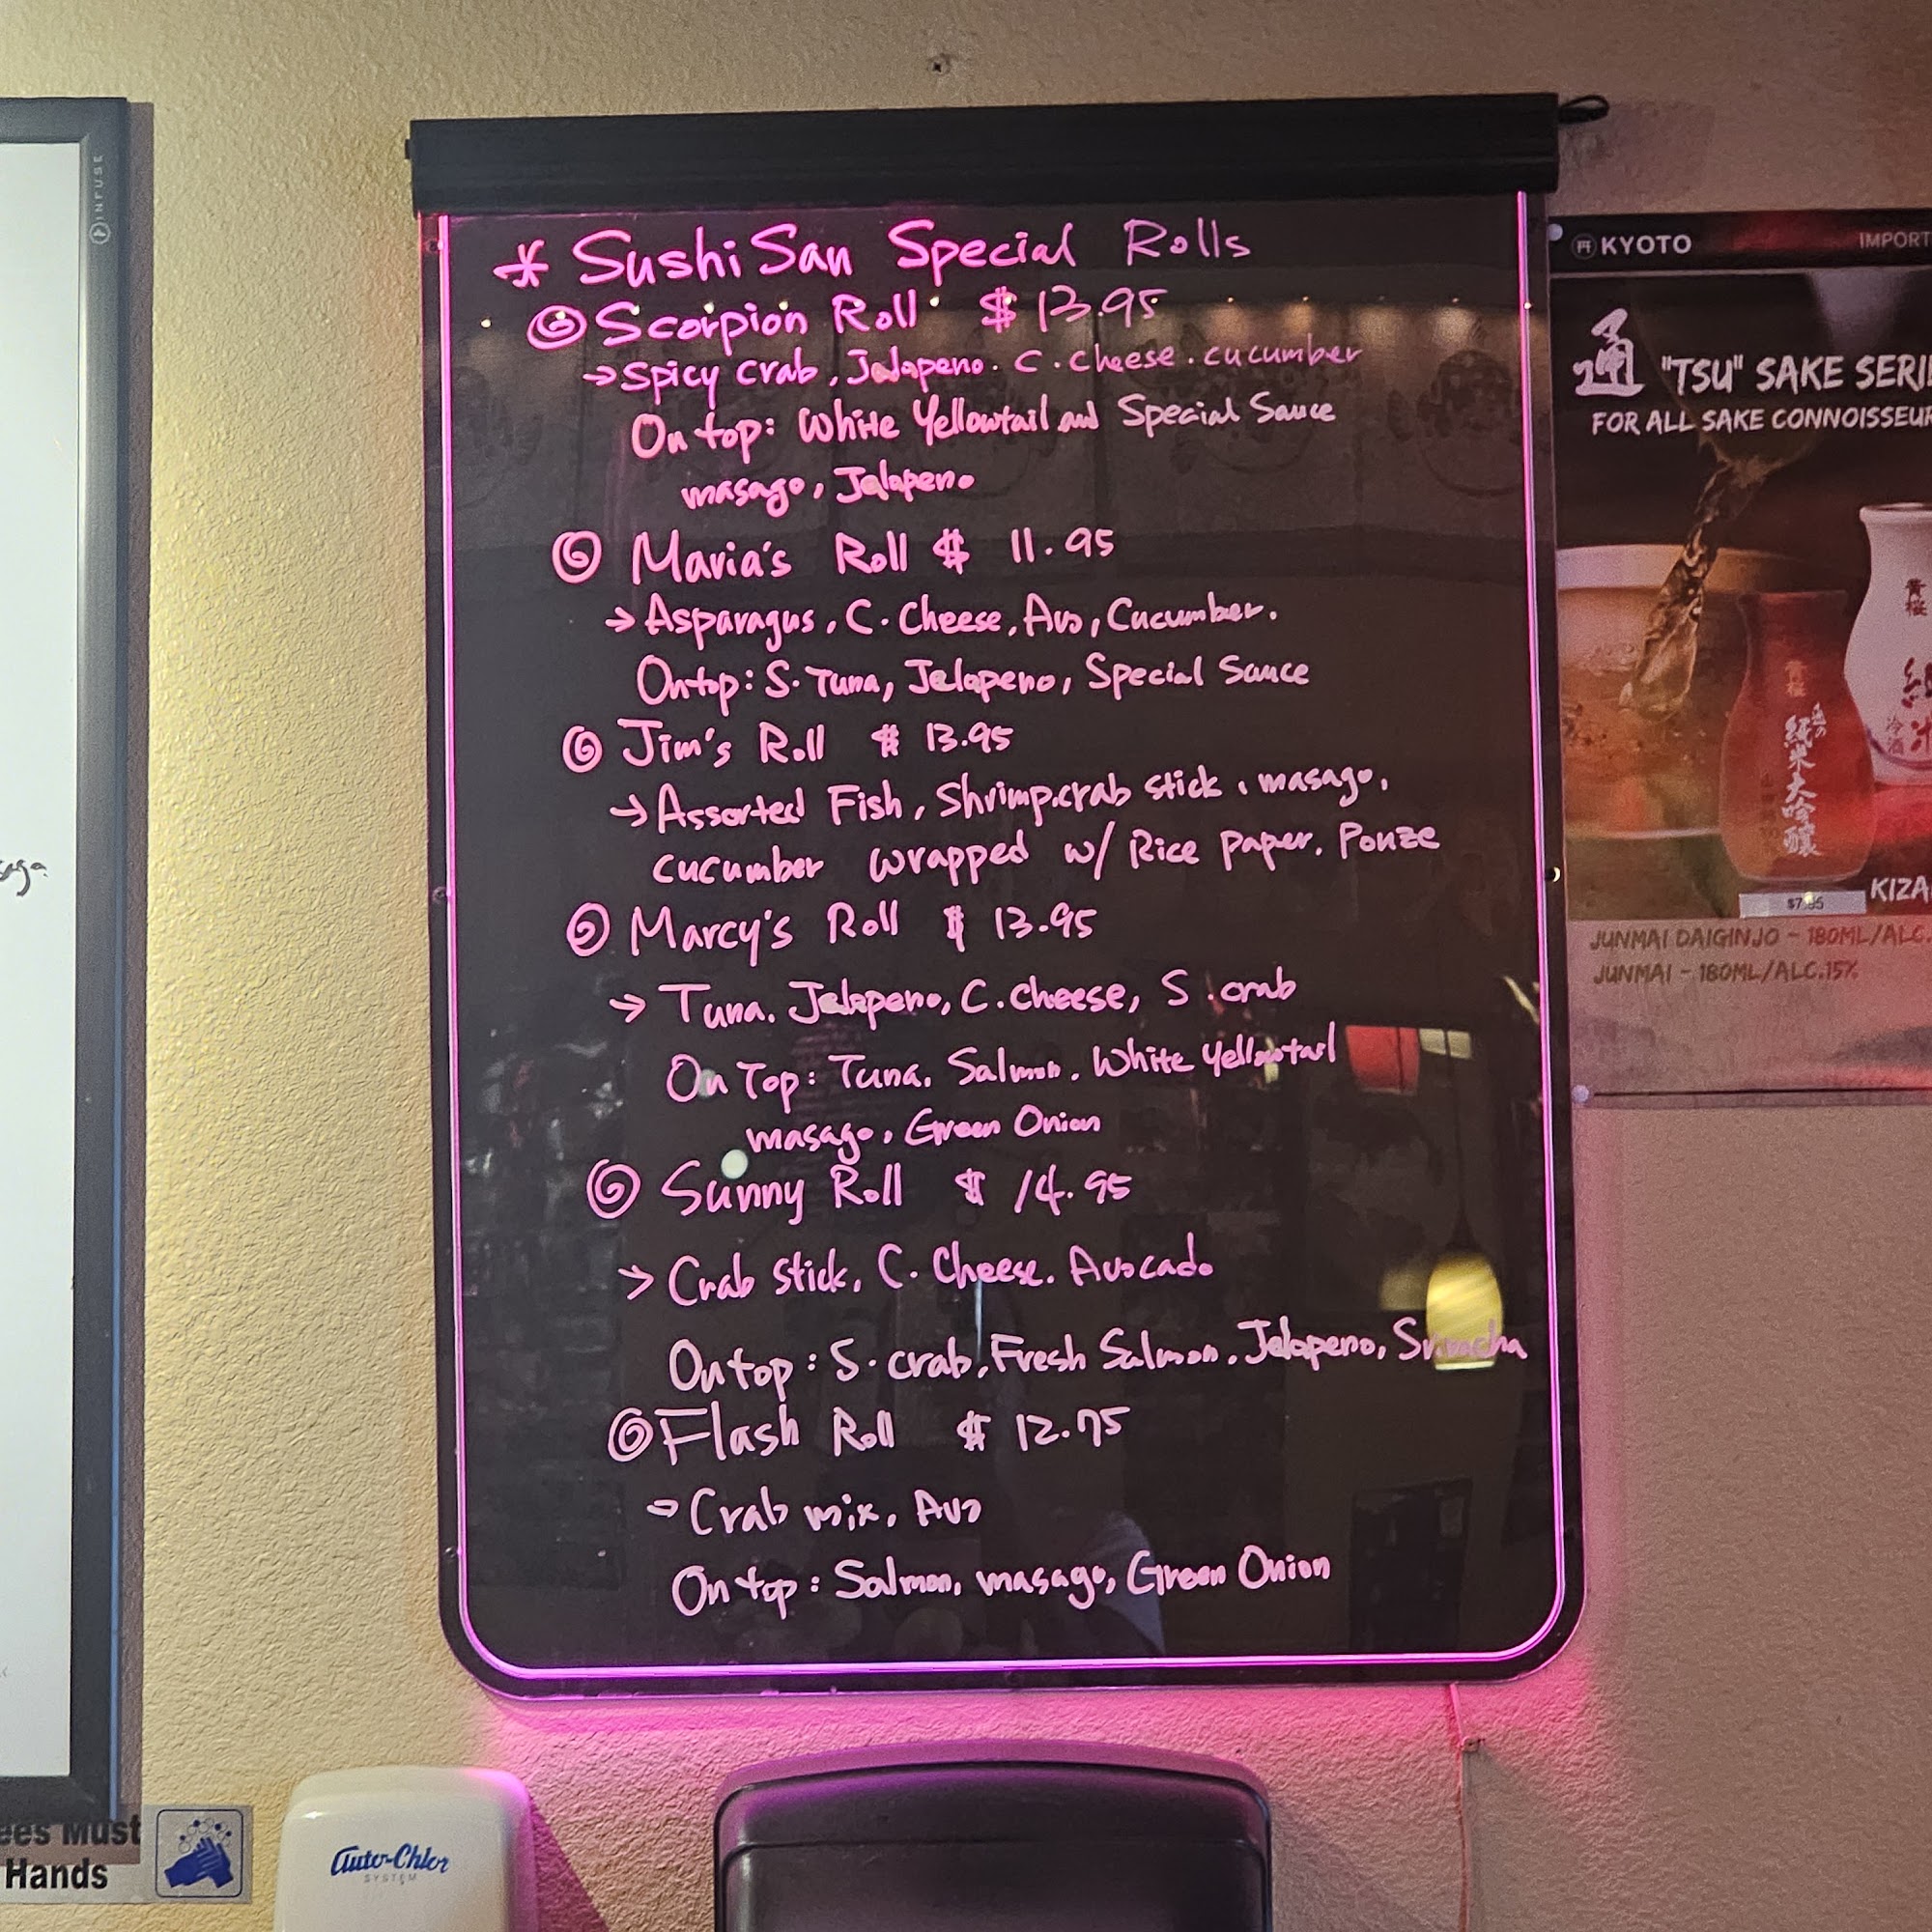 * Sushi San Special Rolls
Scorpion Roll $13.95
→ Spicy crab, Jalapeno. C. cheese. cucumber
On top: White Yellowtail and Special Sauce
masago, Jalapeno
Maria's Roll $ 11.95
→ Asparagus, C. Cheese, Avo, Cucumber.
On top: S. Tuna, Jalapeno, Special Sauce
Jim's Roll $ 13.95
→ Assorted Fish, Shrimp, crab stick, masago,
cucumber wrapped w/ Rice Paper. Ponze
Marcy's Roll $ 13.95
→ Tuna. Jalapeno, C. cheese, S. crab
On Top: Tuna. Salmon. White Yellowtail
masago, Green Onion
Sunny Roll $ 14.95
→ Crab Stick, C. Cheese. Avocado
On top: S. crab, Fresh Salmon, Jalapeno, Sriracha
Flash Roll $ 12.75
→ Crab mix, Avo
On top: Salmon, masago, Green Onion
INFUSE
KYOTO IMPORT
通 "TSU" SAKE SERI
FOR ALL SAKE CONNOISSEUR
黄桜
純米大吟醸
黄桜
冷酒
$7.95
KIZA
JUNMAI DAIGINJO - 180ML/ALC.
JUNMAI - 180ML/ALC.15%
ees Must
Hands
Auto-Chlor
SYSTEM